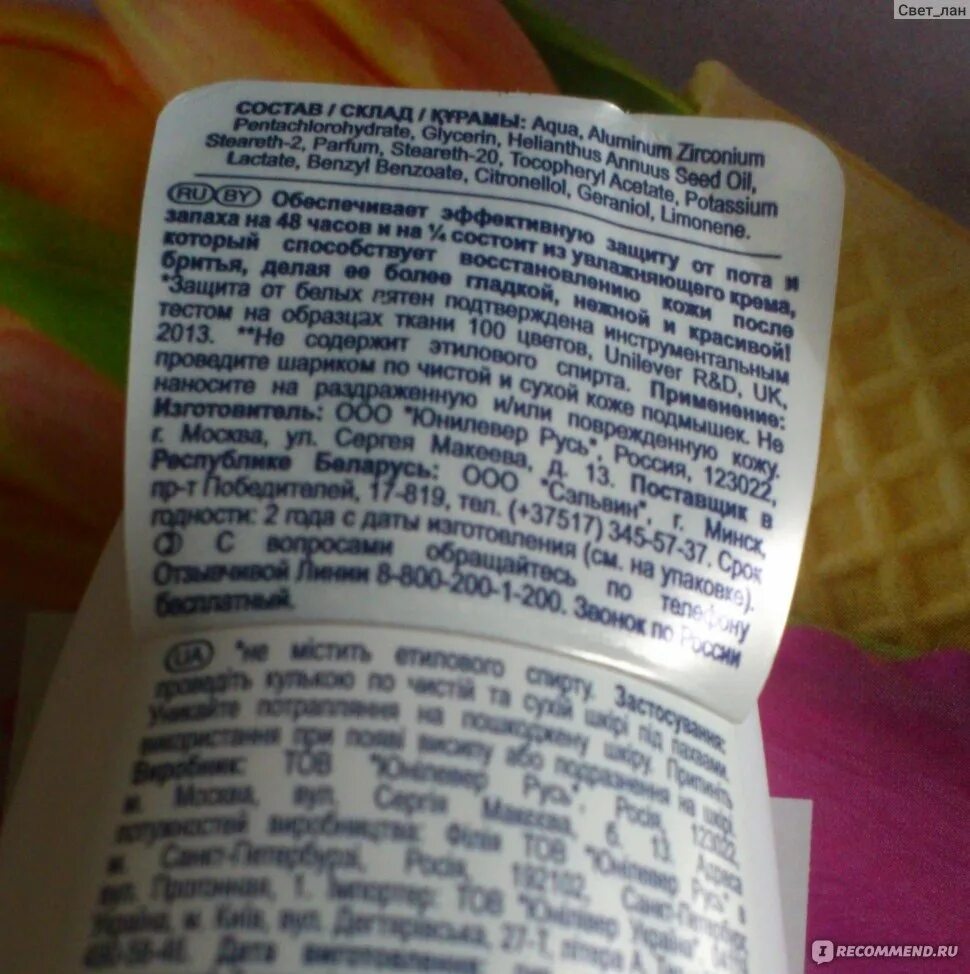 Свет_лан
СОСТАВ / СКЛАД / ҚҰРАМЫ: Aqua, Aluminum Zirconium
Pentachlorohydrate, Glycerin, Helianthus Annuus Seed Oil,
Steareth-2, Parfum, Steareth-20, Tocopheryl Acetate, Potassium
Lactate, Benzyl Benzoate, Citronellol, Geraniol, Limonene.
RU BY Обеспечивает эффективную защиту от пота и
запаха на 48 часов и на ¼ состоит из увлажняющего крема,
который способствует восстановлению кожи после
бритья, делая ее более гладкой, нежной и красивой!
*Защита от белых пятен подтверждена инструментальным
тестом на образцах ткани 100 цветов, Unilever R&D, UK,
2013. **Не содержит этилового спирта. Применение:
проведите шариком по чистой и сухой коже подмышек. Не
наносите на раздраженную и/или поврежденную кожу.
Изготовитель: ООО "Юнилевер Русь", Россия, 123022,
г. Москва, ул. Сергея Макеева, д. 13. Поставщик в
Республике Беларусь: ООО "Сальвин", г. Минск,
пр-т Победителей, 17-819, тел. (+37517) 345-57-37. Срок
годности: 2 года с даты изготовления (см. на упаковке).
С вопросами обращайтесь по телефону
Отзывчивой Линии 8-800-200-1-200. Звонок по России
бесплатный.
UA *не містить етилового спирту. Застосування:
проведіть кулькою по чистій та сухій шкірі під пахвами.
Уникайте потрапляння на пошкоджену шкіру. Припиніть
використання при появі висипу або подразнення на шкірі.
Виробник: ТОВ "Юнілевер Русь", Росія, 123022,
м. Москва, вул. Сергія Макєєва, б. 13. Адреса
потужностей виробництва: Філія ТОВ "Юнілевер Русь" в
м. Санкт-Петербурзі, Росія, 192102, Санкт-Петербург,
вул. Протонная, 1. Імпортер: ТОВ "Юнілевер Україна",
Україна, м. Київ, вул. Дегтярівська, 27-Т, літера А,
Дата виготовлення
RECOMMEND.RU